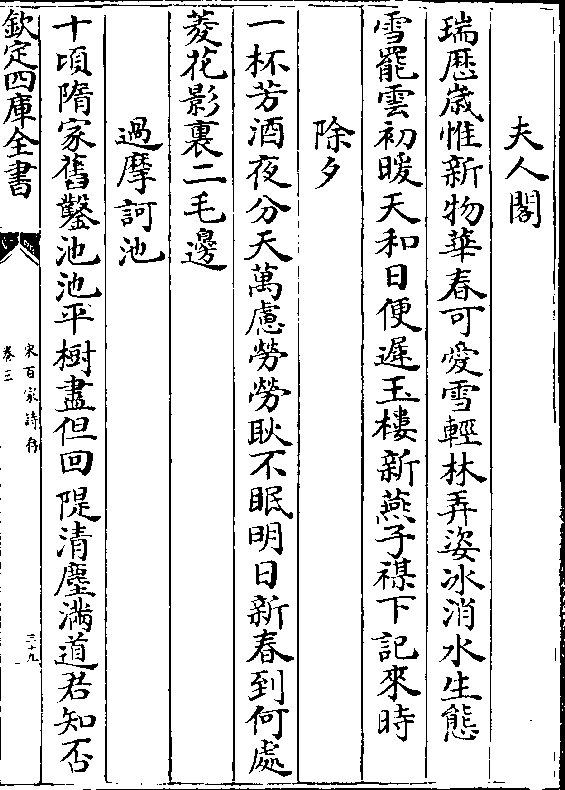 夫人閣
瑞歴歳惟新物華春可愛雪輕林弄姿冰消水生態
雪罷雲初暖天和日便遲玉樓新燕子禖下記來時
除夕
一杯芳酒夜分天萬慮勞勞耿不眠明日新春到何處
菱花影裏二毛邊
過摩訶池
十頃隋家舊鑿池池平樹盡但回隄清塵满道君知否
欽定四庫全書
宋百家詩存
卷三
三十九